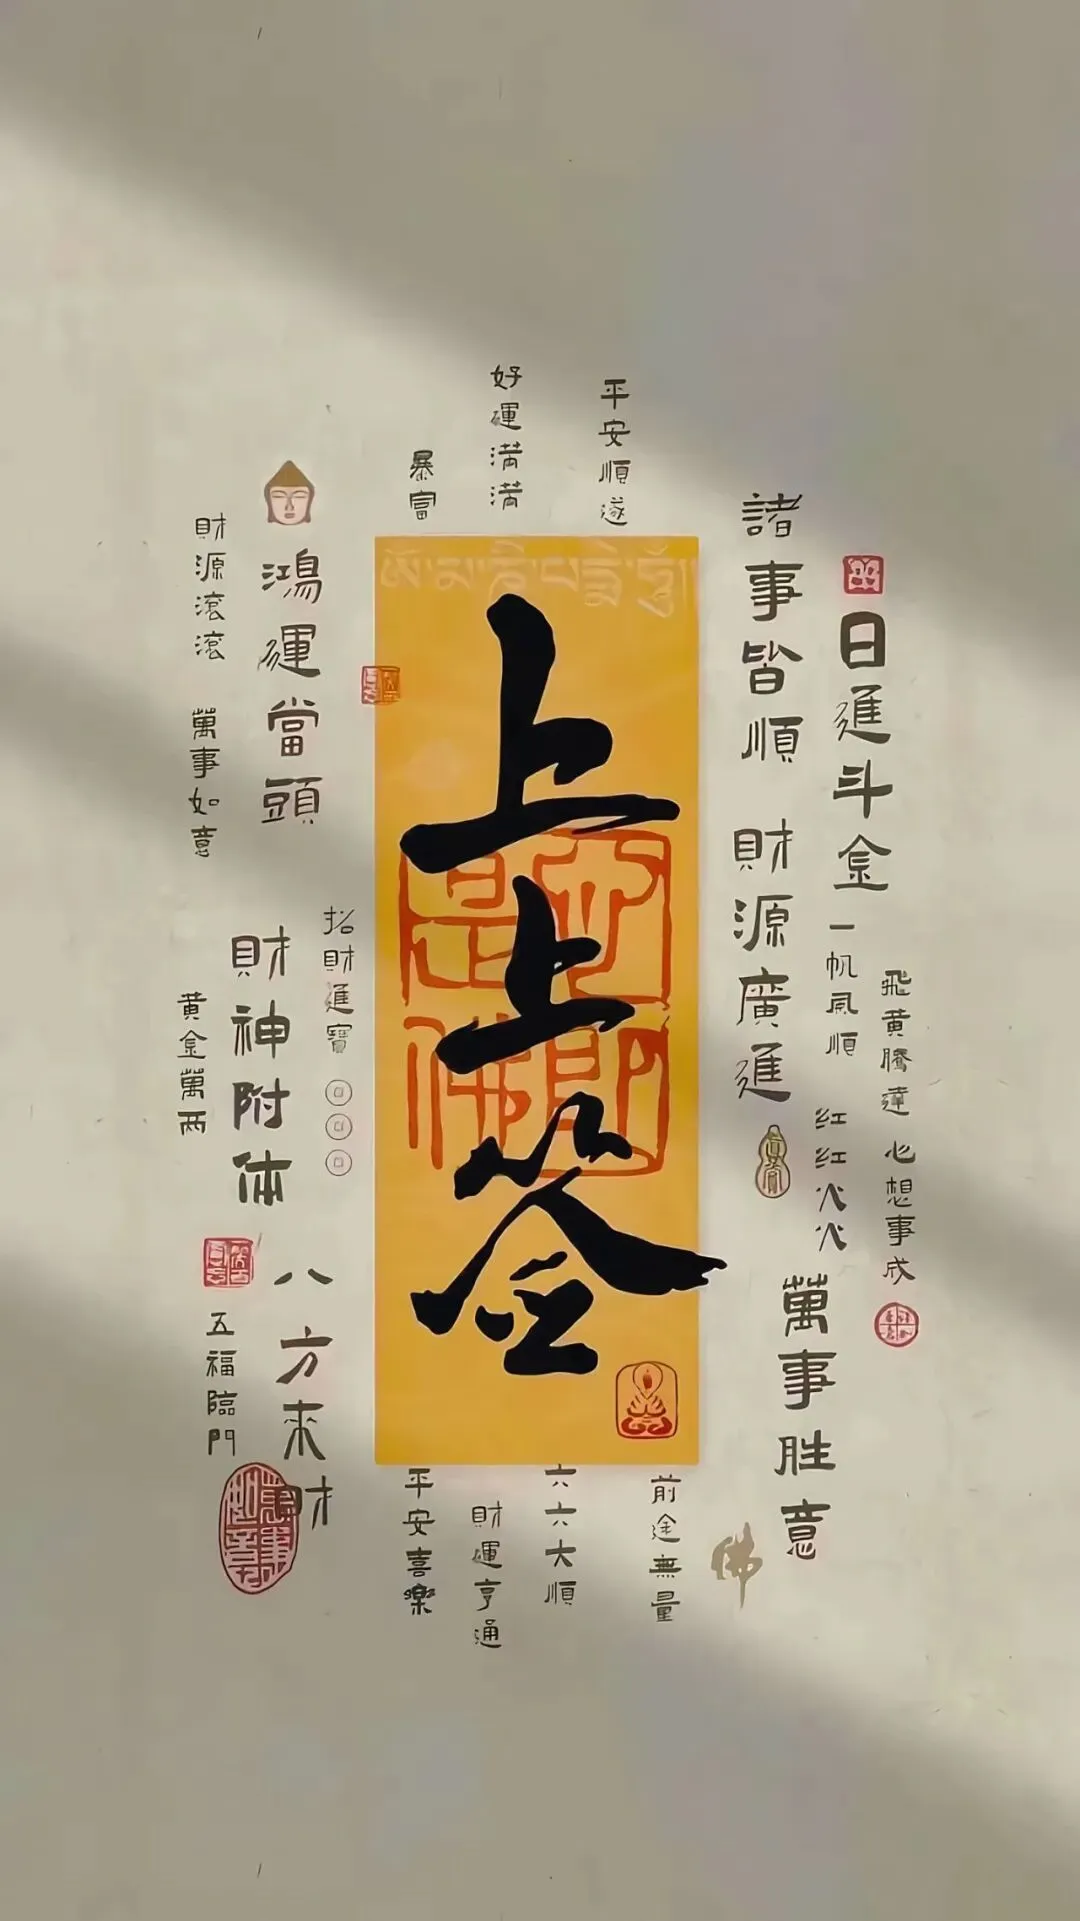 上上签
ཨོཾ་མ་ཎི་པདྨེ་ཧཱུྃ
心即是佛
平安順遂
好運满满
暴富
諸事皆順
財源廣進
日進斗金
一帆風順
飛黄騰達
心想事成
红红火火
萬事胜意
鴻運當頭
財源滚滚
萬事如意
招財進寶
財神附体
黄金萬两
八方来財
五福臨門
平安喜樂
財運亨通
六六大順
前途無量
佛